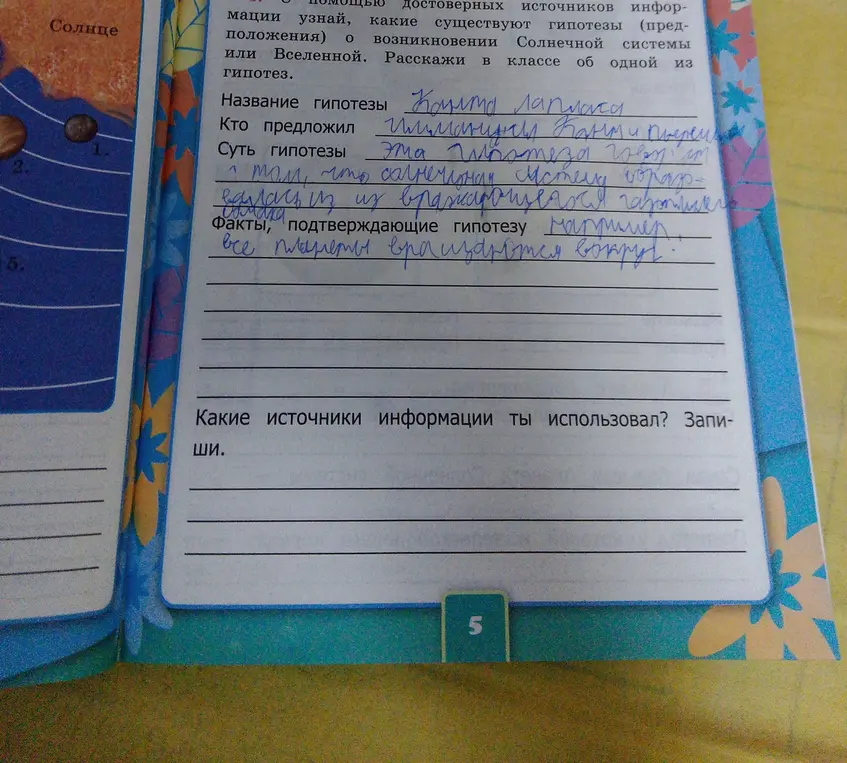 Солнце
1.
2.
5.
С помощью достоверных источников инфор-
мации узнай, какие существуют гипотезы (пред-
положения) о возникновении Солнечной системы
или Вселенной. Расскажи в классе об одной из
гипотез.
Название гипотезы Канта Лапласа
Кто предложил Кант и
Суть гипотезы Эта гипотеза говорит
о том, что солнечная систему образ-
из из газопылевого
облака
Факты, подтверждающие гипотезу Например,
все планеты вращаются вокруг.
Какие источники информации ты использовал? Запи-
ши.
5